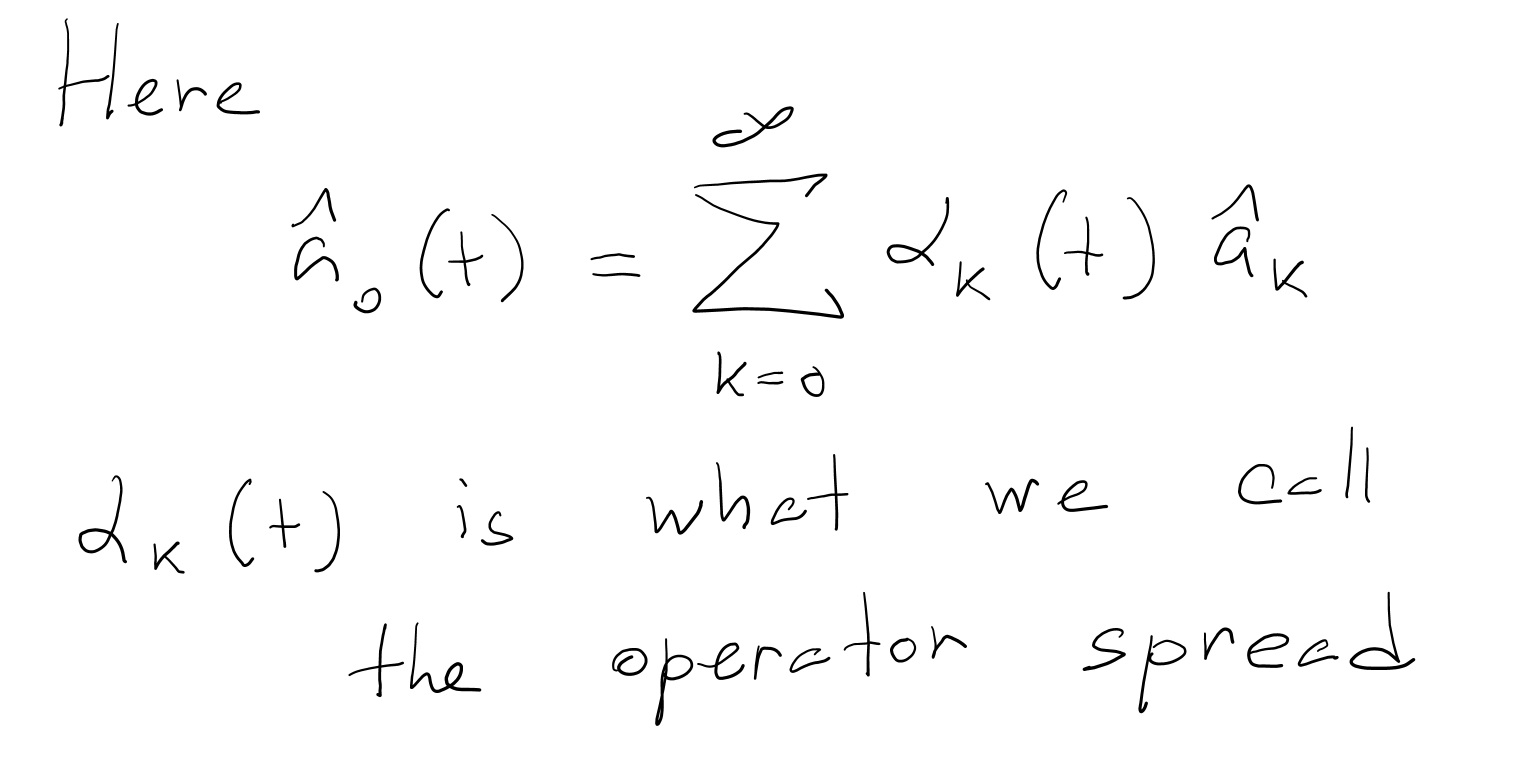 Here
â₀(t) = ∑_{k=0}^{∞} α_k(t) â_k
α_k(t) is what we call
the operator spread